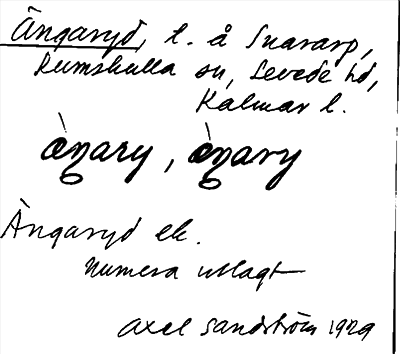 Ängaryd, l. å Snararp,
Rumskulla sn, Sevede hd,
Kalmar l.
æ̀ŋary, æ̀ŋary
Ängaryd ek.
Numera utlagt
Axel Sandström 1929